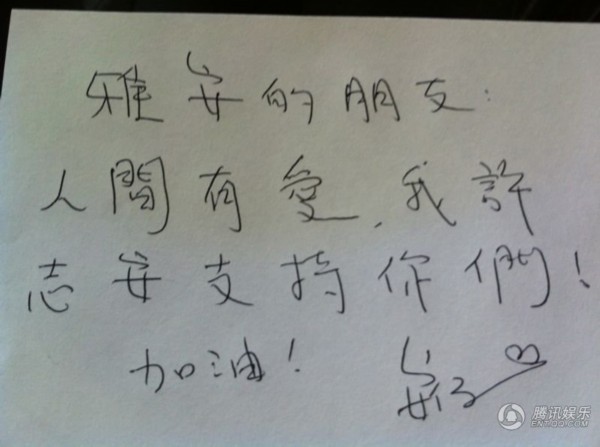 雅安的朋友:
人間有愛,我許
志安支持你們!
加油! 安仔
腾讯娱乐
ENT.QQ.COM